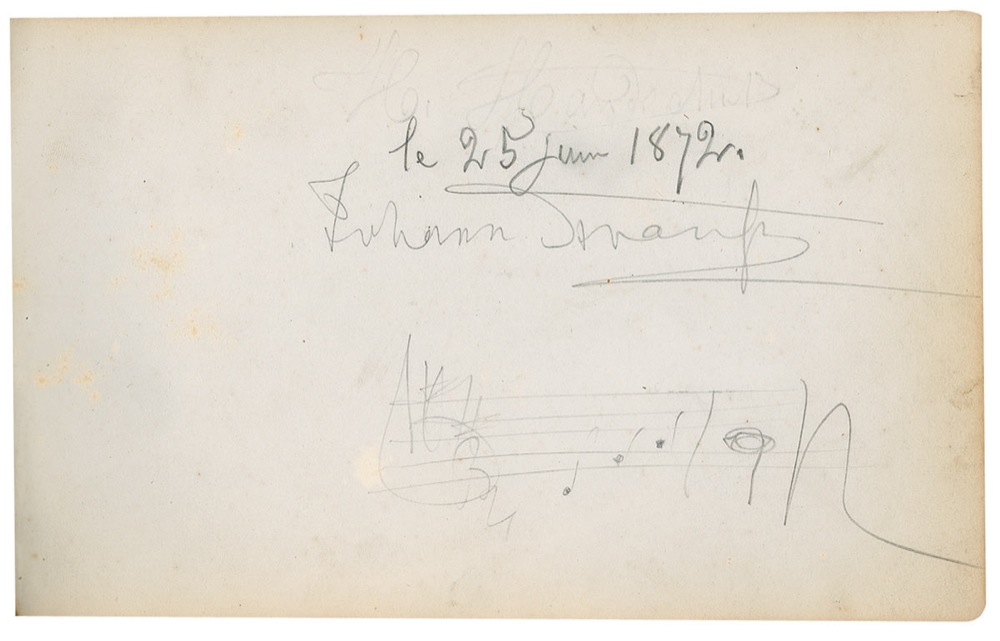 le 25 juin 1872.
Johann Strauß
3
4